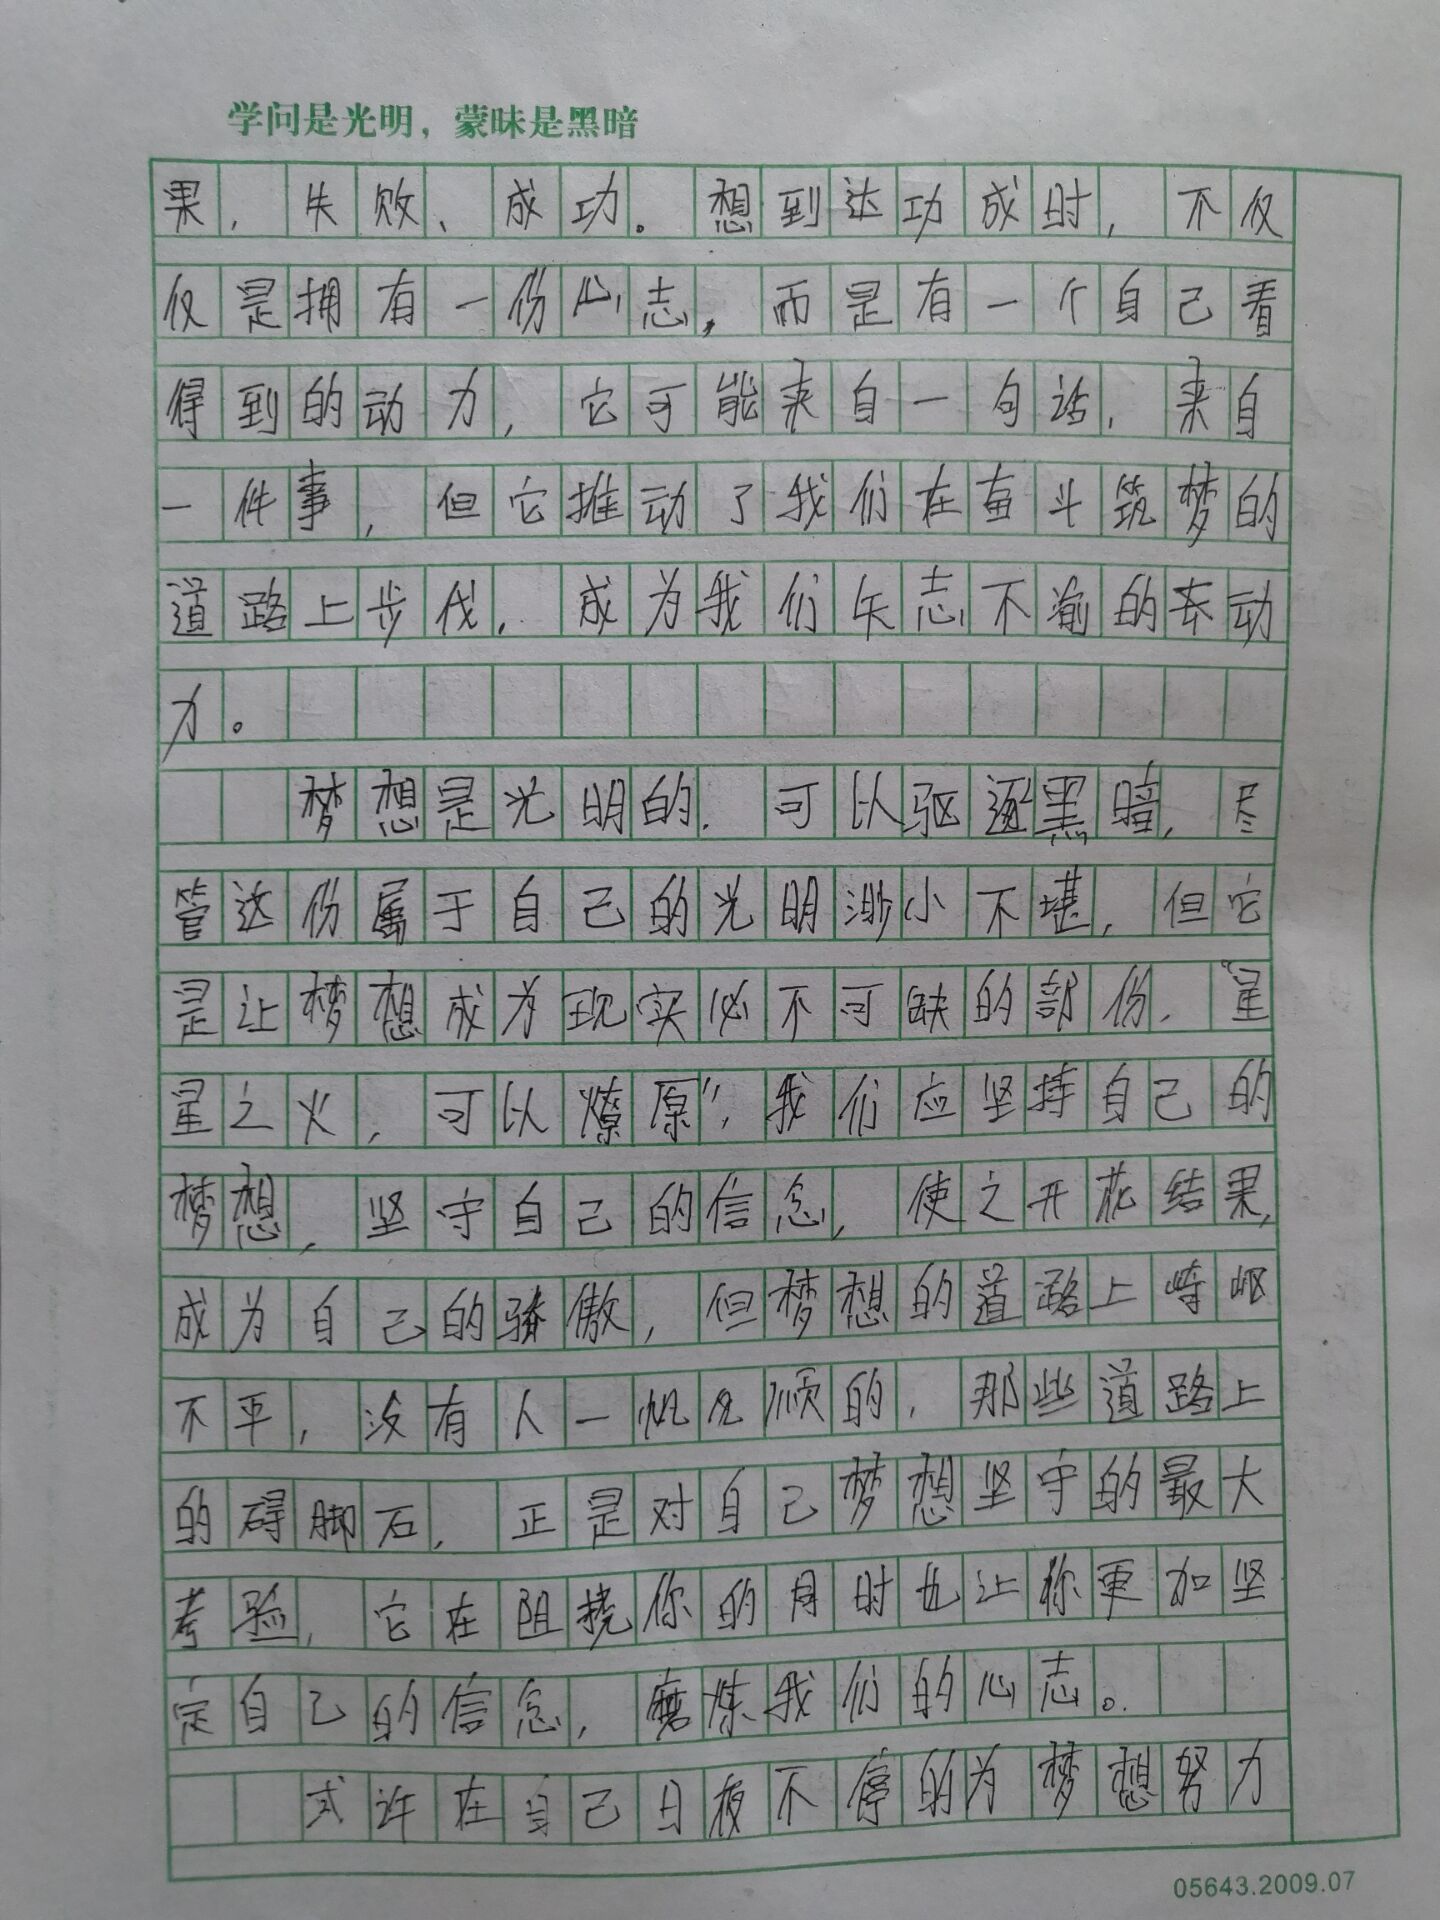 学问是光明，蒙昧是黑暗
果，失败、成功。想到达功成时，不仅
仅是拥有一份心志，而是有一个自己看
得到的动力，它可能来自一句话，来自
一件事，但它推动了我们在奋斗筑梦的
道路上步伐，成为我们矢志不渝的奔动
力。
梦想是光明的，可以驱逐黑暗，尽
管这份属于自己的光明渺小不堪，但它
是让梦想成为现实必不可缺的部份，“星
星之火，可以燎原”，我们应坚持自己的
梦想，坚守自己的信念，使之开花结果，
成为自己的骄傲，但梦想的道路上崎岖
不平，没有人一帆风顺的，那些道路上
的碍脚石，正是对自己梦想坚守的最大
考验，它在阻挠你的同时也让你更加坚
定自己的信念，磨炼我们的心志。
或许在自己日夜不停的为梦想努力
05643.2009.07